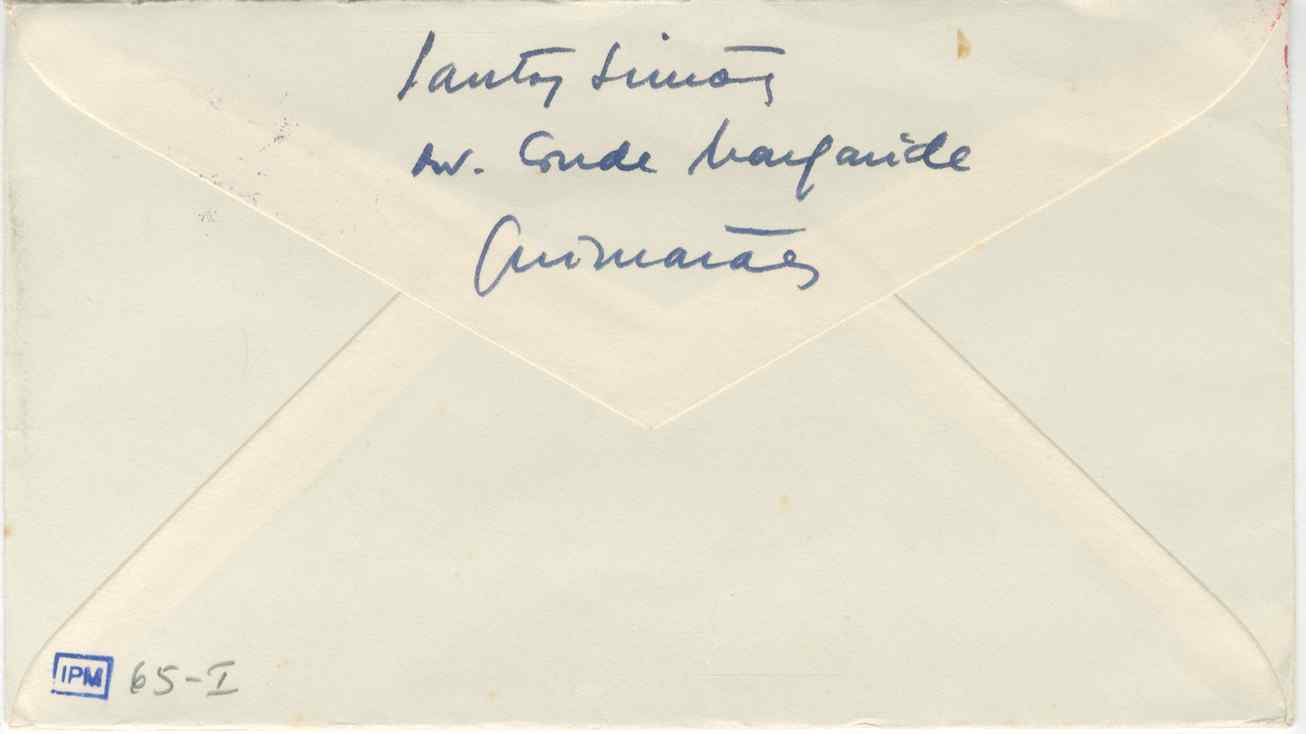 Santos Simões
Av. Conde Margaride
Guimarães
IPM 65-I